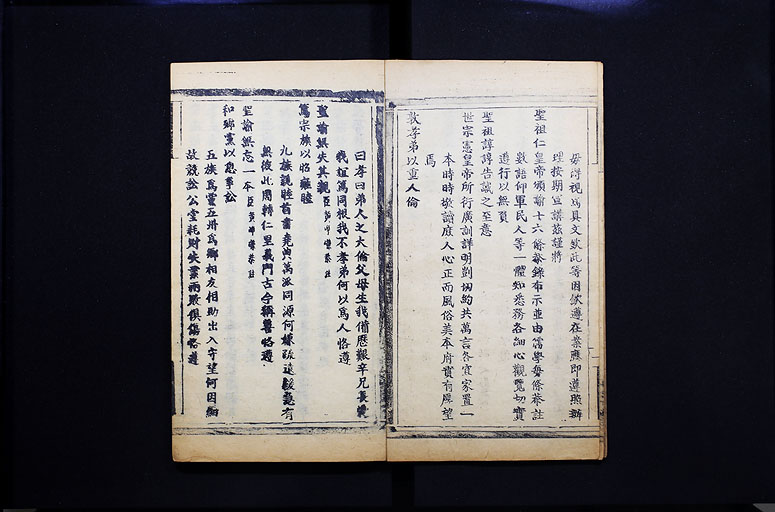 毋得視爲具文欽此等因欽遵在案應即遵照辦
理按期宣講兹謹將
聖祖仁皇帝頒諭十六條恭錄布示並由儒學每條恭註
數語仰軍民人等一體知悉務各細心觀覽切實
遵行以無負
聖祖諄諄告誡之至意
世宗憲皇帝所衍廣訓詳明剴切約共萬言各宜家置一
本時時敬讀庶人心正而風俗美本府實有厚望
焉
敦孝弟以重人倫
曰孝曰弟人之大倫父母生我備歷艱辛兄長
我誼篤同根我不孝弟何以爲人恪遵
聖諭無失其親
篤宗族以昭雍睦
九族親睦首書堯典萬派同源何嫌疏遠緩急有
無彼此周轉仁里義門古今稱善恪遵
聖諭無忘一本
和鄉黨以息爭訟
五族爲黨五州爲鄉相友相助出入守望何因細
故競訟公堂耗財失業兩敗俱傷恪遵